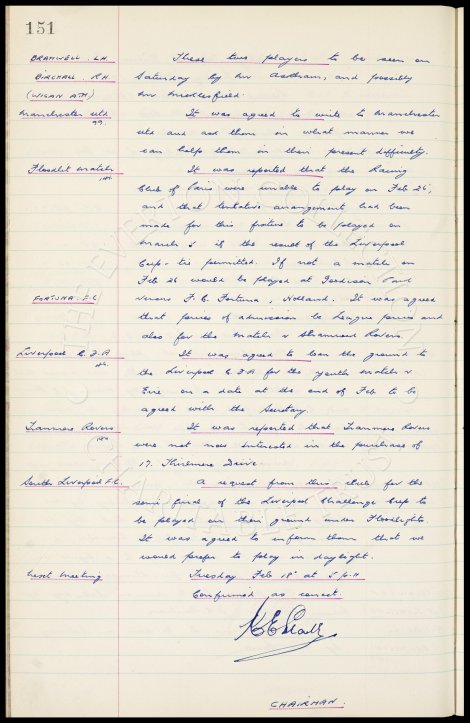 151
BRAMWELL. L.H. These two players to be seen on
BIRCHALL. R.H. Saturday by Mr Axtham, and possibly
(WIGAN ATH) Mr Micklesfield.
Manchester utd It was agreed to write to Manchester
utd and ask them in what manner we
can help them in their present difficulty.
Floodlit match It was reported that the Racing
Club of Paris were unable to play on Feb 26,
and that tentative arrangement had been
made for this fixture to be played on
March 5 if the result of the Liverpool
Cup-tie permitted. If not a match on
Feb 26 would be played at Goodison Park
FORTUNA. F.C. versus F.C. Fortuna, Holland. It was agreed
that prices of admission be League prices and
also for the match v Shamrock Rovers.
Liverpool C.F.A It was agreed to loan the ground to
the Liverpool C F A for the youth match v
Eire on a date at the end of Feb to be
agreed with the Secretary.
Tranmere Rovers It was reported that Tranmere Rovers
were not now interested in the purchase of
17. Thirlmere Drive.
South Liverpool F.C. A request from this club for the
semi final of the Liverpool Challenge Cup to
be played on their ground under Floodlights.
It was agreed to inform them that we
would prefer to play in daylight.
Next meeting Tuesday Feb 18 at 5 p.m
Confirmed as correct.
CHAIRMAN.